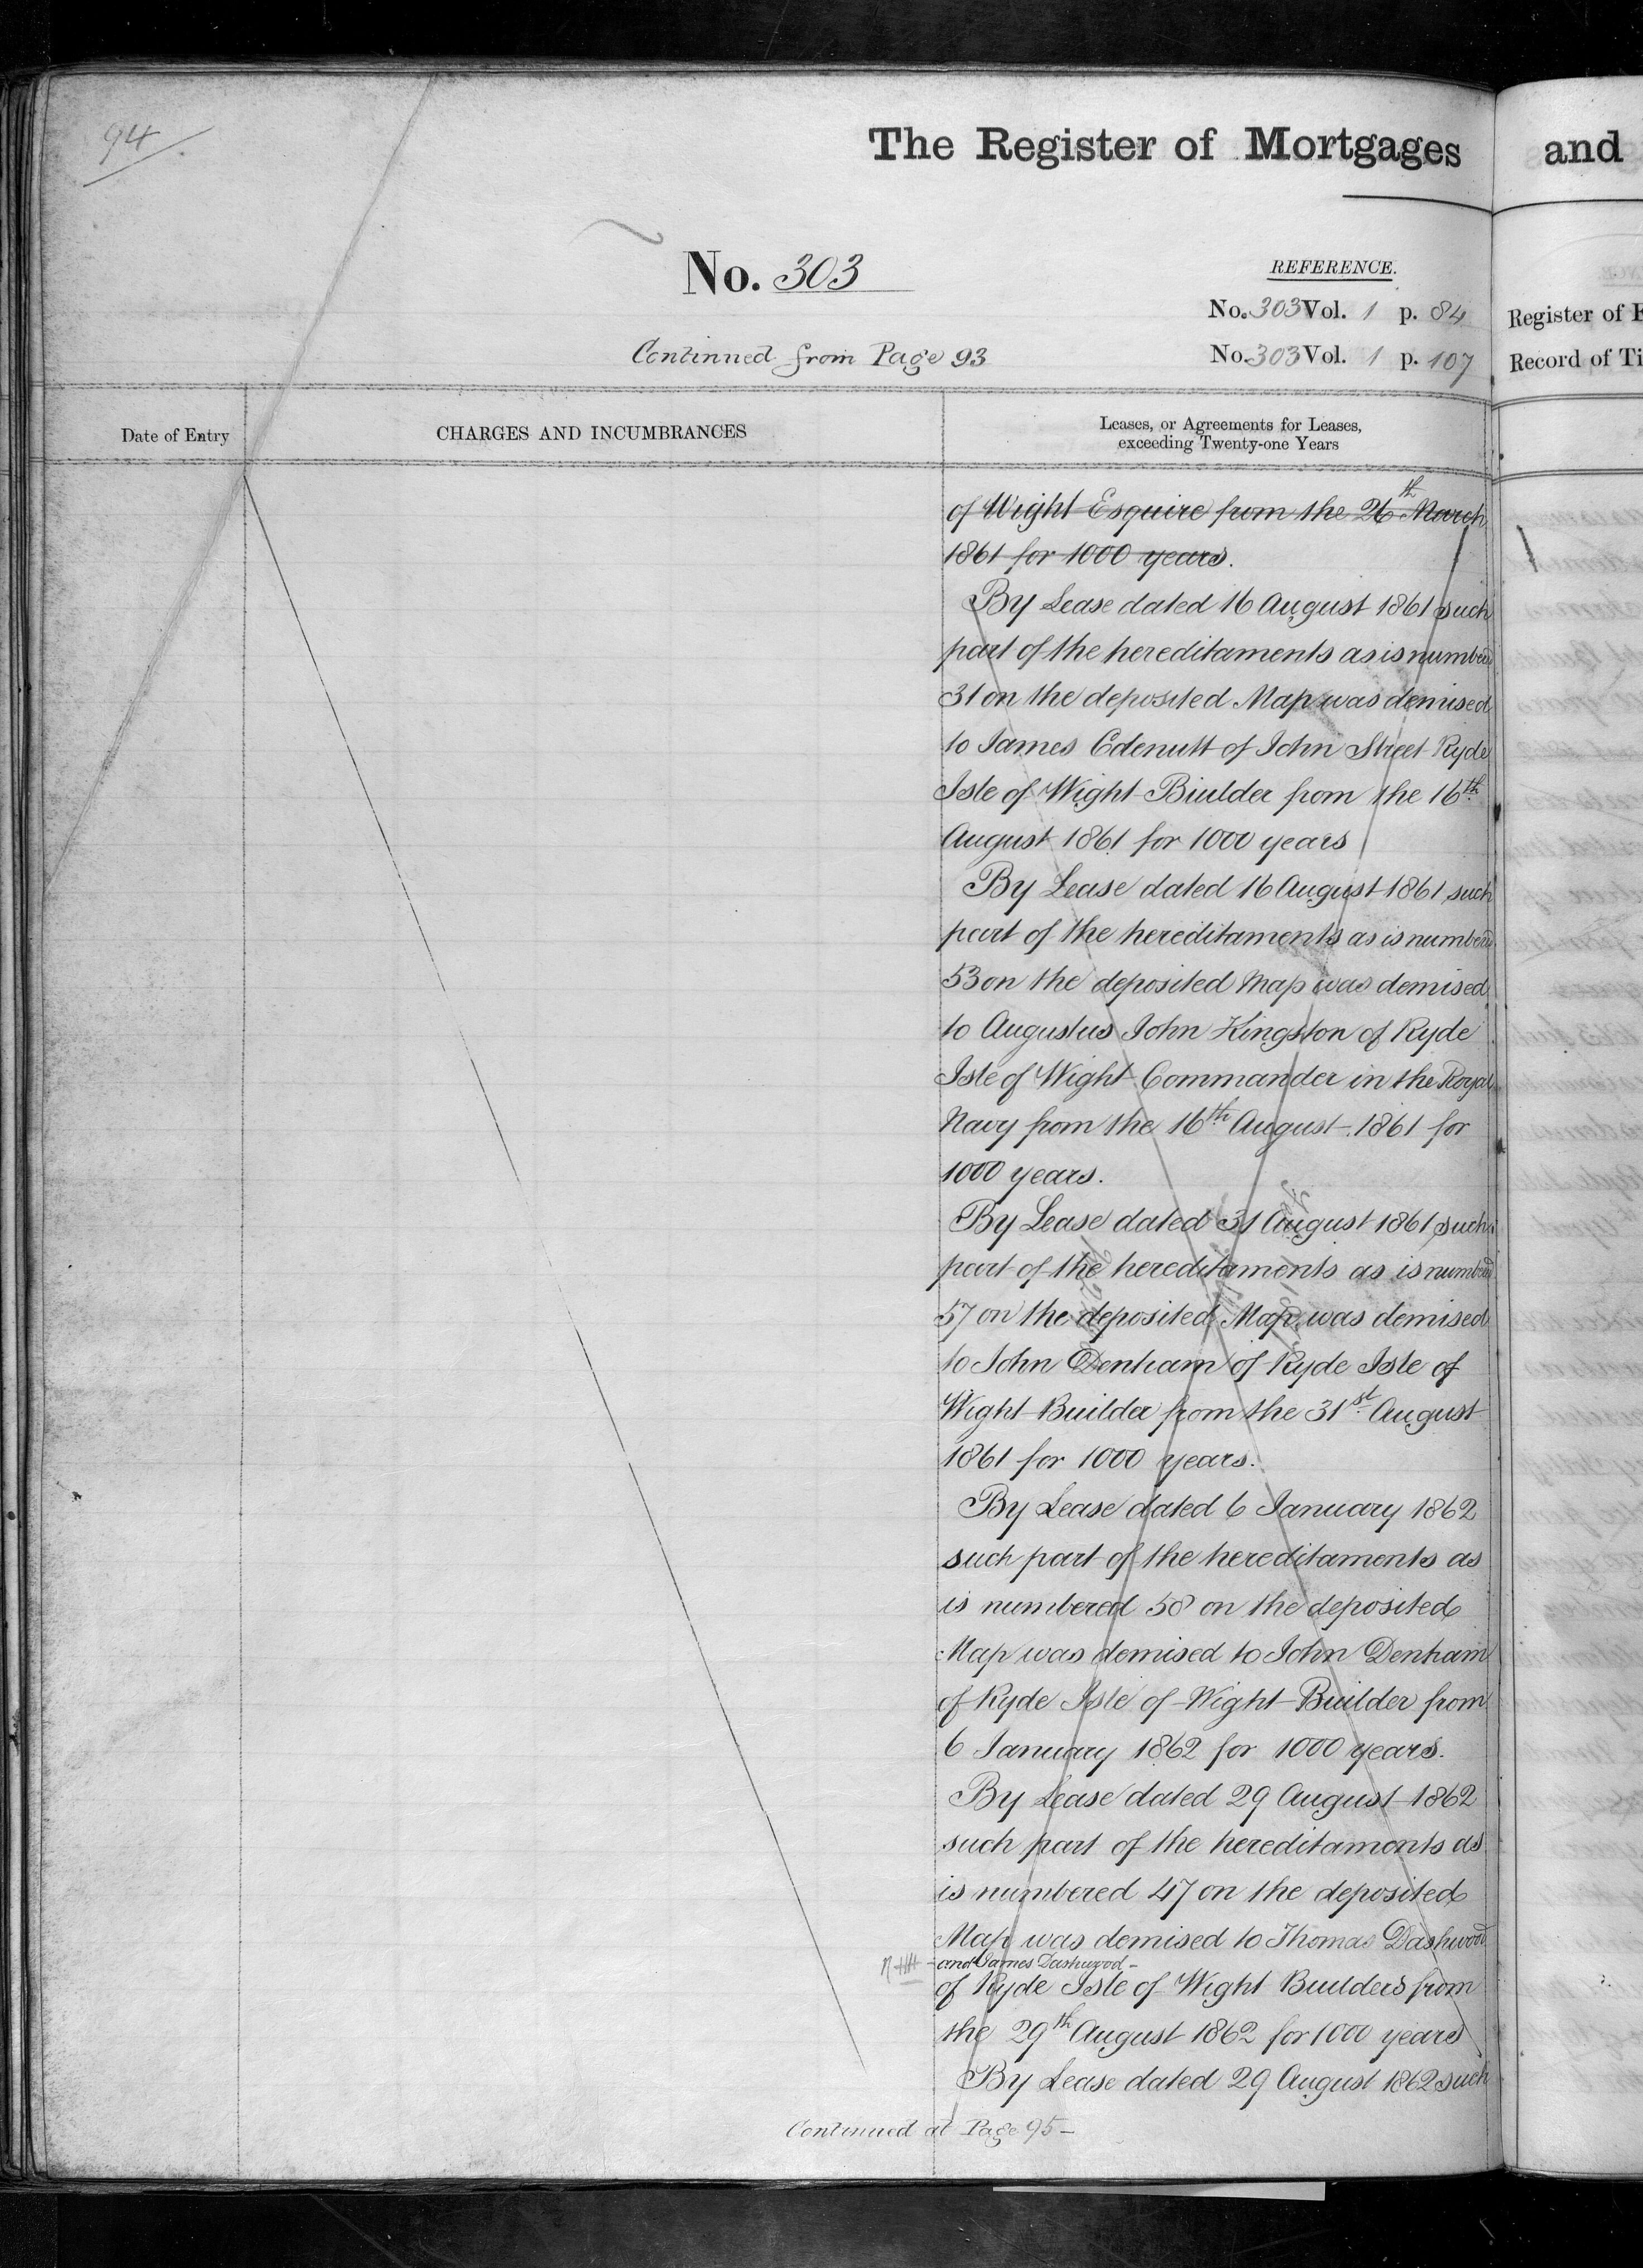 94
The Register of Mortgages and
No. 303
REFERENCE.
No. 303 Vol. 1 p. 84 Register of
Continued from Page 93
No. 303 Vol. 1 p. 107 Record of Ti
Date of Entry
CHARGES AND INCUMBRANCES
Leases, or Agreements for Leases,
exceeding Twenty-one Years
of Wight Esquire from the 26th March
1861 for 1000 years.
By Lease dated 16 August 1861 such
part of the hereditaments as is numbered
31 on the deposited Map was demised
to James Edenutt of John Street Ryde
Isle of Wight Builder from the 16th
August 1861 for 1000 years
By Lease dated 16 August 1861 such
part of the hereditaments as is numbered
53 on the deposited Map was demised
to Augustus John Kingston of Ryde
Isle of Wight Commander in the Royal
Navy from the 16th August 1861 for
1000 years.
By Lease dated 31 August 1861 such
part of the hereditaments as is numbered
57 on the deposited Map was demised
to John Denham of Ryde Isle of
Wight Builder from the 31st August
1861 for 1000 years.
By Lease dated 6 January 1862
such part of the hereditaments as
is numbered 58 on the deposited
Map was demised to John Denham
of Ryde Isle of Wight Builder from
6 January 1862 for 1000 years.
By Lease dated 29 August 1862
such part of the hereditaments as
is numbered 47 on the deposited
Map was demised to Thomas Dashwood
and James Dashwood
of Ryde Isle of Wight Builders from
the 29th August 1862 for 1000 years
By Lease dated 29 August 1862 such
Continued at Page 95